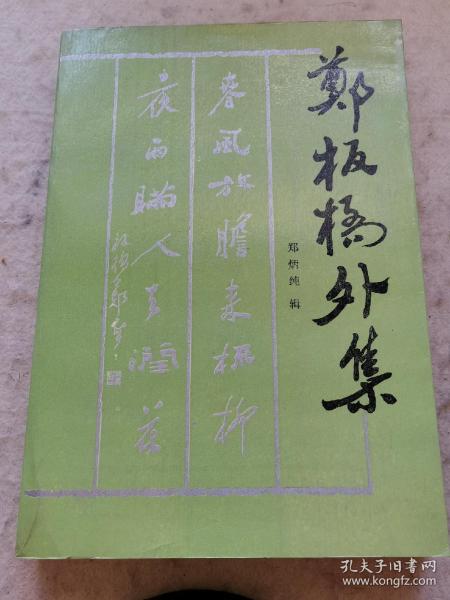 鄭板橋外集
郑炳纯 辑
春風放膽来梳柳
夜雨瞞人去潤花
板橋鄭燮
孔夫子旧书网
www.kongfz.com